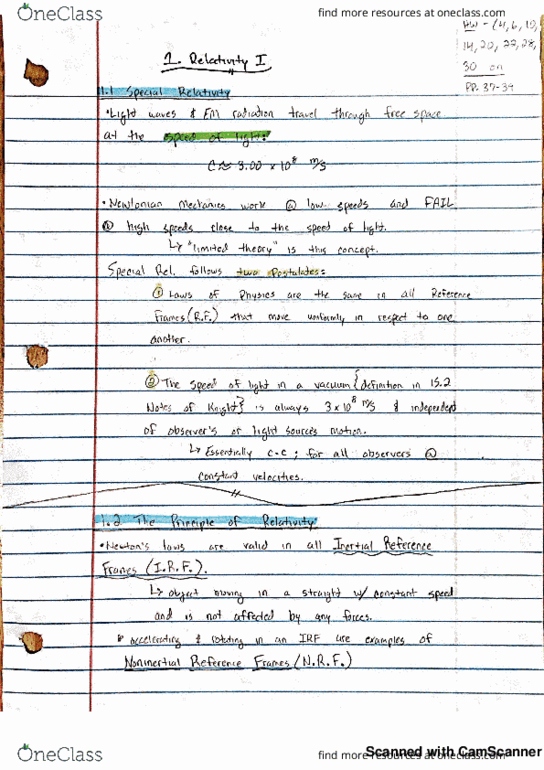 OneClass
find more resources at oneclass.com
HW - (4, 6, 10,
14, 20, 22, 28,
30 on
PP. 37-39
1. Relativity I
1.1 Special Relativity
• Light waves & EM radiation travel through free space
at the speed of light:
C ≈ 3.00 x 10⁸ m/s
• Newtonian mechanics work @ low speeds and FAIL
@ high speeds close to the speed of light.
↳ "limited theory" is this concept.
Special Rel. follows two Postulates:
① Laws of Physics are the same in all Reference
Frames (R.F.) that move uniformly in respect to one
another.
② The speed of light in a vacuum {definition in 15.2
Notes of Knight} is always 3 x 10⁸ m/s & independent
of observer's or light source's motion.
↳ Essentially c=c ; for all observers @
constant velocities.
1.2 The Principle of Relativity
• Newton's laws are valid in all Inertial Reference
Frames (I.R.F.).
↳ object moving in a straight w/ constant speed
and is not affected by any forces.
* accelerating & rotating in an IRF are examples of
Noninertial Reference Frames (N.R.F.)
OneClass
find more resources at oneclass.com
Scanned with CamScanner